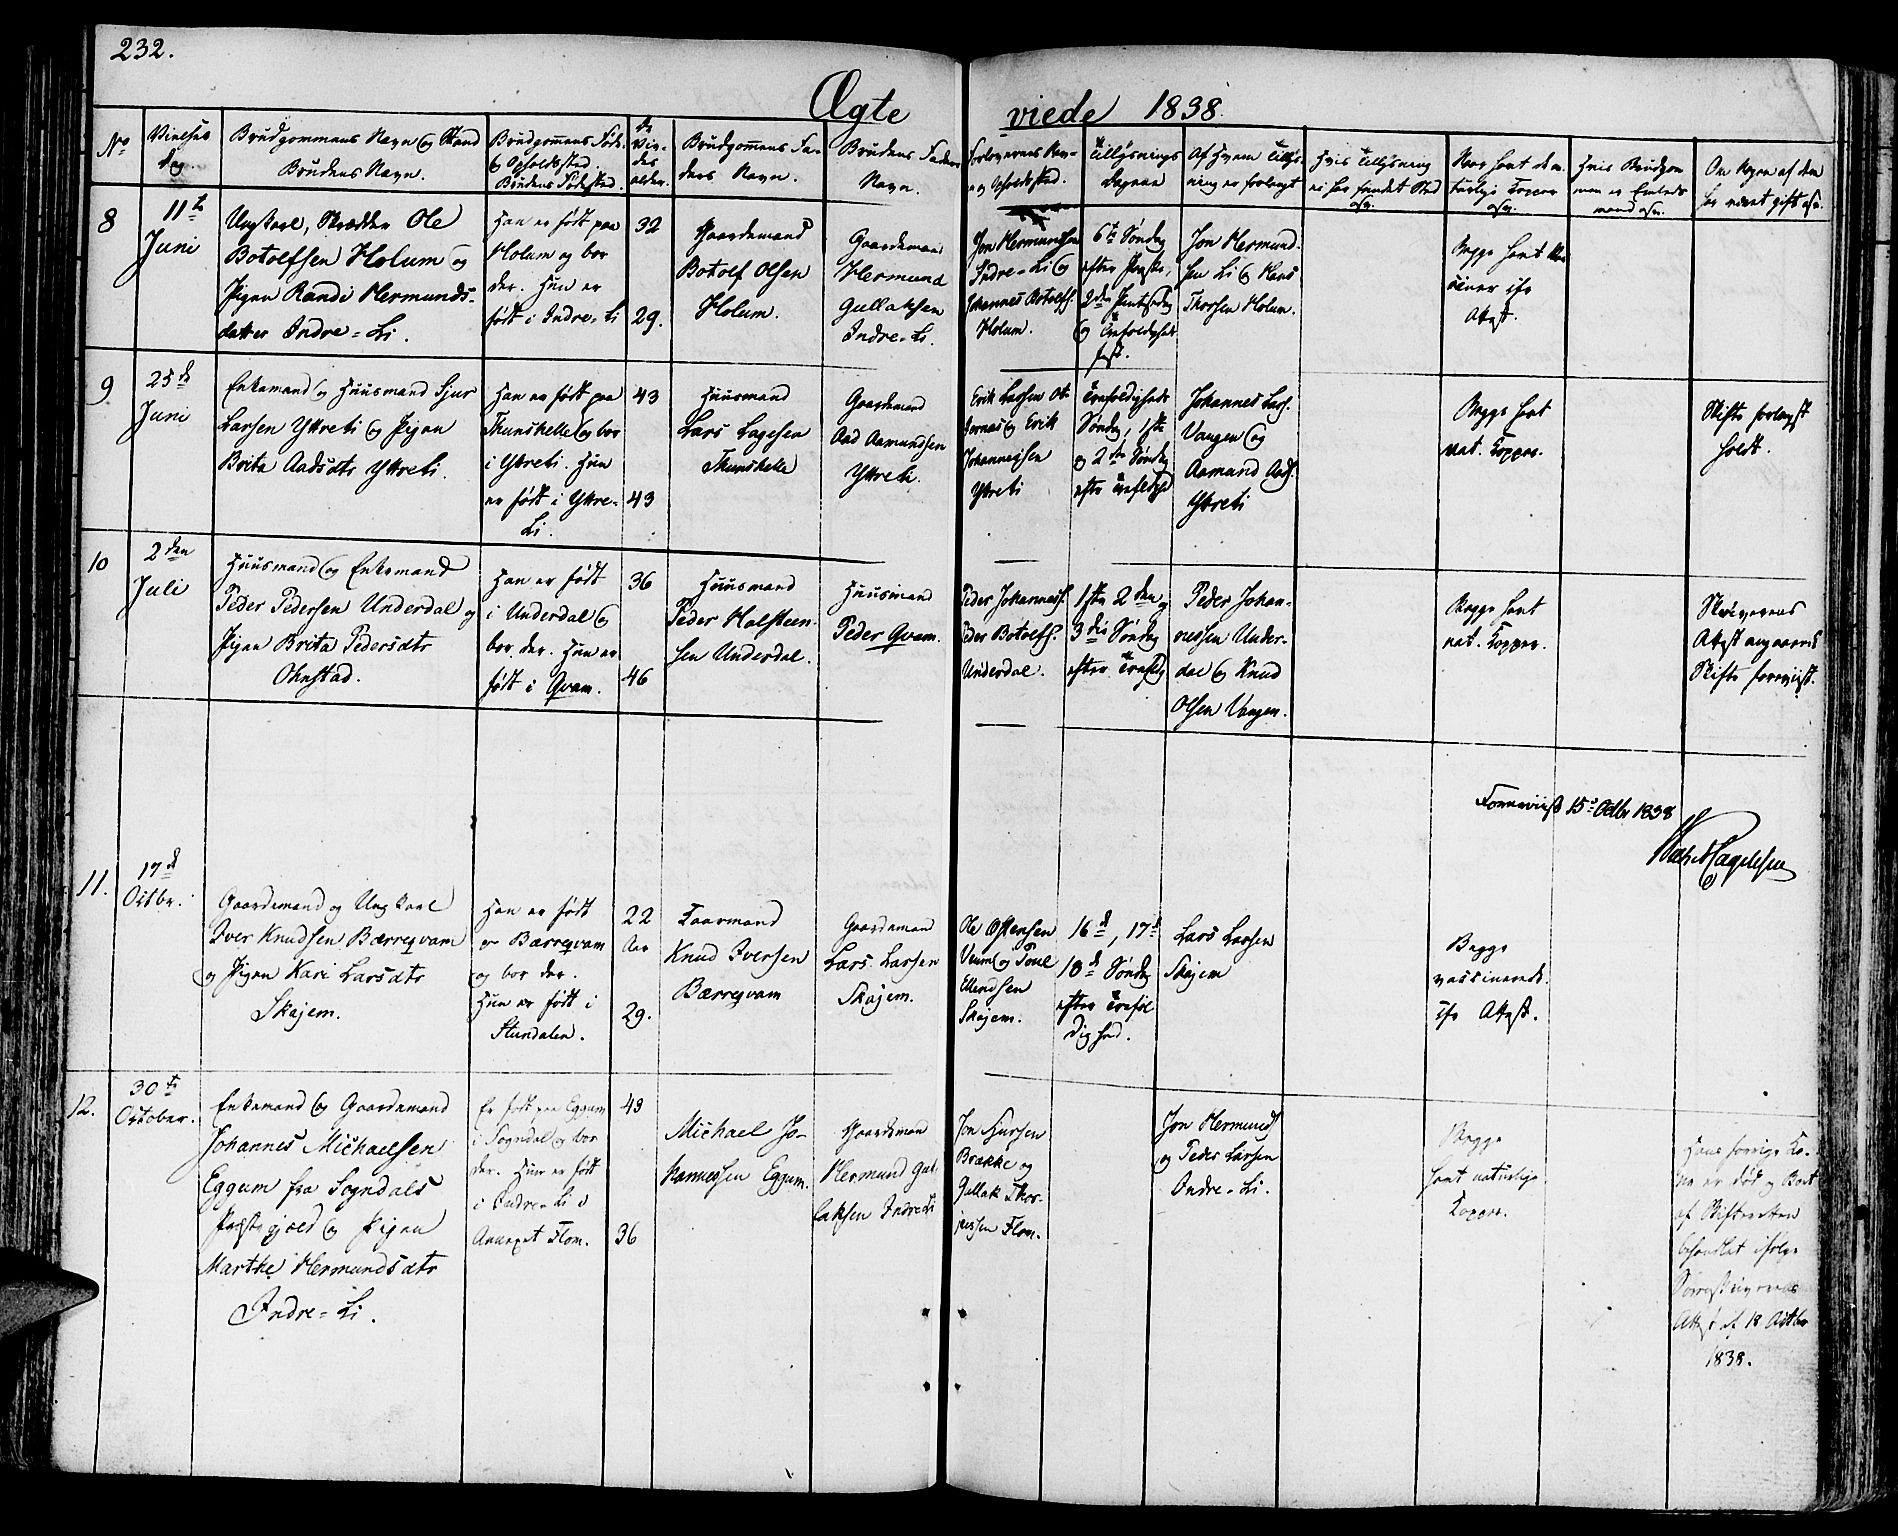 232.
Ægte viede 1838.
No
Vielses Dag.
Brudgommens Navn og Stand
Brudens Navn.
Brudgomens Føde-
& Opholdssted.
Brudens Fødested.
de
Vie-
des
alder.
Brudgomens Fa-
ders Navn.
Brudens Faders
Navn.
Forlovernes Nav-
ne og Opholdsted.
Tillysnings
Dagene
Af hvem Tillys-
ning er forlangt
Hvis Tillysning
ei har fundet Sted
osv.
Naar havt de na-
turlige Kopper
osv.
Hvis Brudgom
men er Enlods
mand osv.
Om Nogen af dem
har været gift osv.
8
11te
Juni
Ungkarl, Skrædder Ole
Botolfsen Holum og
Pigen Randi Hermunds-
datter Indre-Li.
Han er født paa
Holum og bor
der. Hun er
født i Indre-Li
32
29.
Gaardemand
Botolf Olsen
Holum.
Gaardeman
Hermund
Gullaksen
Indre-Li.
Jon Hermundsen
Indre-Li og
Johannes Botolfs.
Holum.
6te Søndag
efter Paaske,
2den Pintsedag
og Trefoldigheds
fest.
Jon Hermund-
sen Li og Hans
Thorsen Holum.
Begge havt
ifø
Attest.
9
25de
Juni
Enkemand og Huusmand Sjur
Larsen Ytreli og Pigen
Brita Aadsdtr Ytreli.
Han er født paa
Thunshelle og bor
i Ytreli. Hun
er født i Ytre-
Li.
43
43
Huusmand
Lars Lagesen
Thunshelle
Gaardemand
Aad Aamundsen
Ytreli.
Erik Larsen Ot-
ternæs og Erik
Johannessen
Ytreli
Trefoldigheds
Søndag, 1ste
og 2den Søndag
efter Trefoldighed
Johannes Lars.
Vangen og
Aamund Aads.
Ytreli
Begge havt
nat. Kopper.
Skifte forlangst
holdt.
10
2den
Juli
Huusmand og Enkemand
Peder Pedersen Underdal og
Pigen Brita Pedersdtr
Ohnstad.
Han er født
i Underdal og
bor der. Hun er
født i Qvam.
36
46
Huusmand
Peder Holsteen-
sen Underdal.
Huusmand
Peder Qvam.
Peder Johanness.
Peder Botolfs.
Underdal.
1ste 2den og
3die Søndag
efter Trefoldig
Peder Johan-
nessen Under-
dal og Knud
Olsen Vangen.
Begge havt
nat. Kopper.
Skriverens
Attest angaaende
Skifte foreviist.
Foreviist 15de Octbr 1838
11.
17de
Octbr.
Gaardemand og Ungkarl
Iver Knudsen Bærreqvam
og Pigen Kari Larsdtr
Skajem.
Han er født
Bærreqvam
og bor der.
Hun er født i
Stundalen.
22
Aar
29.
Kaarmand
Knud Iversen
Bærreqvam
Gaardeman
Lars Larsen
Skajem.
Ole Østensen
Veum og Poul
Ellendsen
Skajem.
16de, 17de
18de Søndag
efter Trefol
dighed.
Lars Larsen
Skajem
Begge
vaccinerede
ifø Attest.
12.
30te
October.
Enkemand og Gaardemand
Johannes Michaelsen
Eggum fra Sogndals
Præstegjeld og Pigen
Marthe Hermundsdtr
Indre-Li.
Er født paa Eggum
i Sogndal og bor
der. Hun er født
i Indre-Li i
Annexet Flom.
43
36
Michael Jo-
hannessen Eggum.
Gaardeman
Hermund Gul
laksen IndreLi
Jon Sjursen
Brække og
Gullak Thor-
jussen Flom.
Jon Hermunds
og Peder Larsen
Indre-Li.
Begge
havt naturlige
Kopper.
Hans forrige Ko-
ne er død og Boet
af Skifteretten
behandlet ifølge
Sorenskriverens
Attest af 18 Octbr
1838.